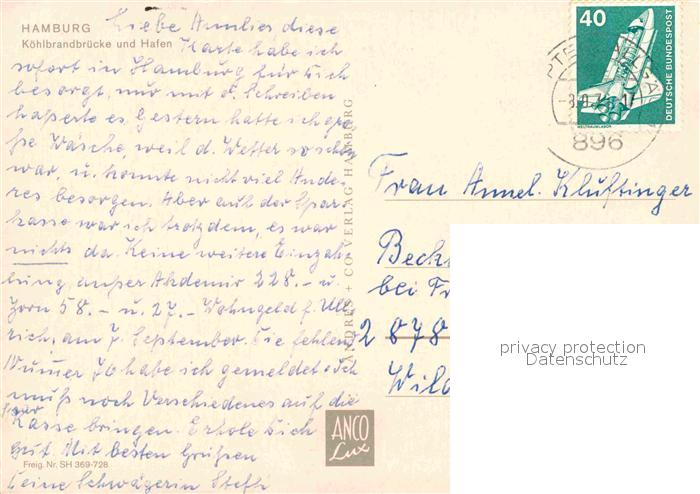 HAMBURG
Köhlbrandbrücke und Hafen
Liebe Annlies, diese
Karte habe ich
sofort in Hamburg für Dich
besorgt, nur mit d. Schreiben
haperte es. Gestern hatte ich gro-
ße Wäsche weil d. Wetter so schön
war, u. konnte nicht viel Ande-
res besorgen. Aber auf der Spar-
kasse war ich trotzdem, es war
nichts da. Keine weitere Einzah-
lung außer Akademie 228.- u.
Zorn 58.- u. 27.- Wohngeld f. Ull-
rich, am 7. September. Die fehlende
Numer 76 habe ich gemeldet. Ich
muß noch Verschiedenes auf die
Kasse bringen. Erhole Dich
gut. Mit besten Grüßen
Deine Schwägerin Steffi
Freig. Nr. SH 369-728
ANDRES + CO VERLAG HAMBURG
ANCO
Lux
40
DEUTSCHE BUNDESPOST
WELTRAUMLABOR
896
Frau Annel. Kluftinger
Beck
bei Fr
2878
Wild
privacy protection
Datenschutz